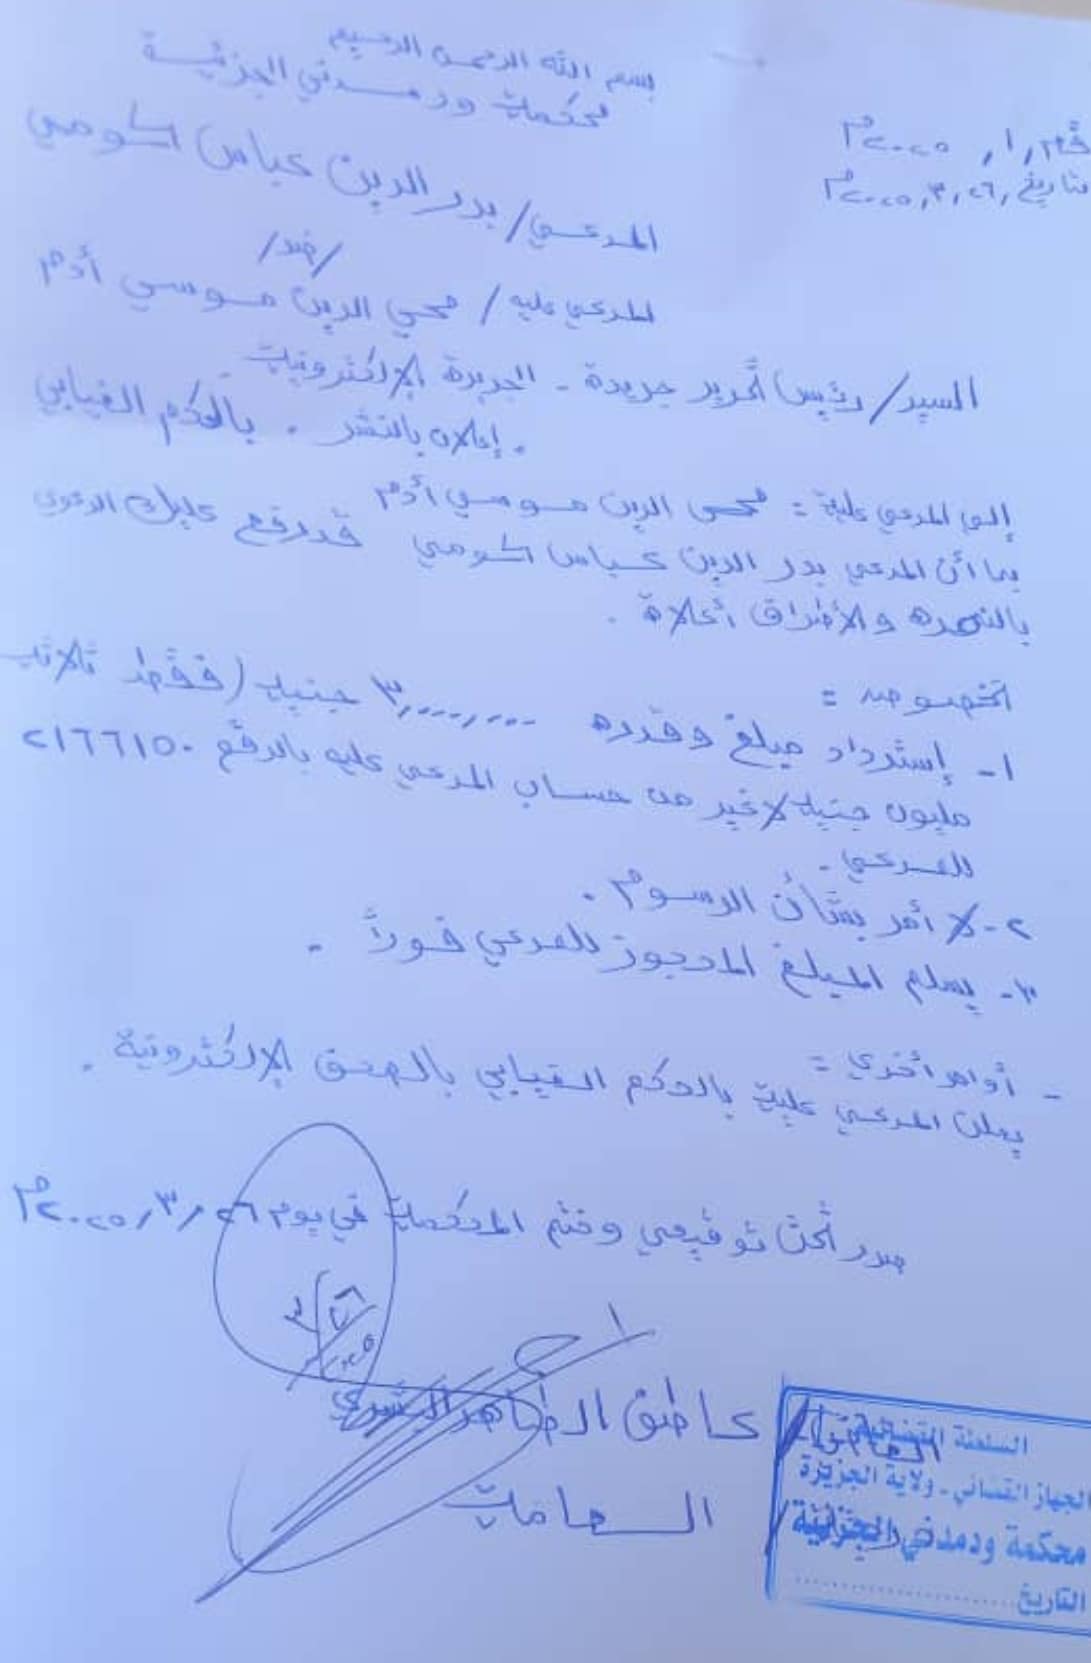 بسم الله الرحمن الرحيم
محكمة ودمدني الجزئية
٢٠٢٥م
بتاريخ ٢٠٢٥,٣,٢٦م
المدعي/ بدر الدين عباس الكومي
/ضد/
المدعي عليه / محي الدين موسي أدم
السيد/ رئيس تحرير جريدة - الجريدة الإلكترونية
. إعلان بالنشر . بالحكم الغيابي
إلى المدعي عليه : محي الدين موسي أدم
بما أن المدعي بدر الدين عباس الكومي قد رفع عليك الدعوى
بالنمرة والأطراف أعلاة .
الخصوص :
١- إسترداد مبلغ وقدره ٣,٠٠٠,٠٠٠ جنية (فقط ثلاثة
مليون جنية لاغير من حساب المدعي عليه بالرقم ٢١٦٦١٥٠
للمدعي .
٢- لا أمر بشأن الرسوم .
٣- يسلم المبلغ المحجوز للمدعي فوراً .
- أوامر أخري :
يعلن المدعي علية بالحكم الغيابي بالصحف الإلكترونية .
صدر تحت توقيعي وختم المحكمة في يوم ٢٠٢٥,٣,٢٦م
٢٦/٣
عاطف الطاهر
السلطة القضائية
الجهاز القضائي - ولاية الجزيرة
محكمة ودمدني الجزئية
التاريخ